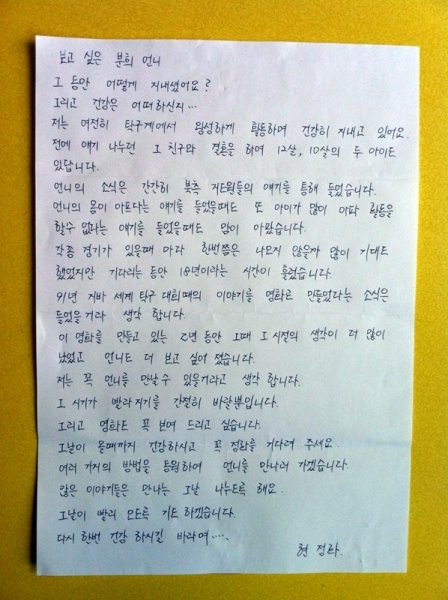 보고 싶은 분희 언니
그 동안 어떻게 지내셨어요?
그리고 건강은 어떠하신지...
저는 여전히 탁구계에서 왕성하게 활동하며 건강히 지내고 있어요.
전에 얘기 나누던 그 친구와 결혼을 하여 12살, 10살의 두 아이도
있답니다.
언니의 소식은 간간히 북측 임원들의 얘기를 통해 들었습니다.
언니의 몸이 아프다는 얘기를 들었을때도 또 아이가 많이 아파 활동을
할수 없다는 얘기를 들었을때도 맘이 아팠습니다.
각종 경기가 있을때 마다 한번쯤은 나오지 않을까 많이 기대도
했었지만 기다리는 동안 18년이라는 시간이 흘렀습니다.
91년 지바 세계 탁구 대회때의 이야기를 영화로 만들었다는 소식은
들었을거라 생각 합니다.
이 영화를 만들고 있는 2년 동안 그때 그 시절의 생각이 더 많이
났었고 언니도 더 보고 싶어 졌습니다.
저는 꼭 언니를 만날수 있을거라고 생각 합니다.
그 시기가 빨라지기를 간절히 바랄뿐입니다.
그리고 영화도 꼭 보여 드리고 싶습니다.
그날이 올때까지 건강하시고 꼭 정화를 기다려 주세요.
여러 가지의 방법을 동원하여 언니를 만나러 가겠습니다.
많은 이야기들은 만나는 그날 나누도록 해요.
그날이 빨리 오도록 기도 하겠습니다.
다시 한번 건강 하시길 바라며.....
현 정화.